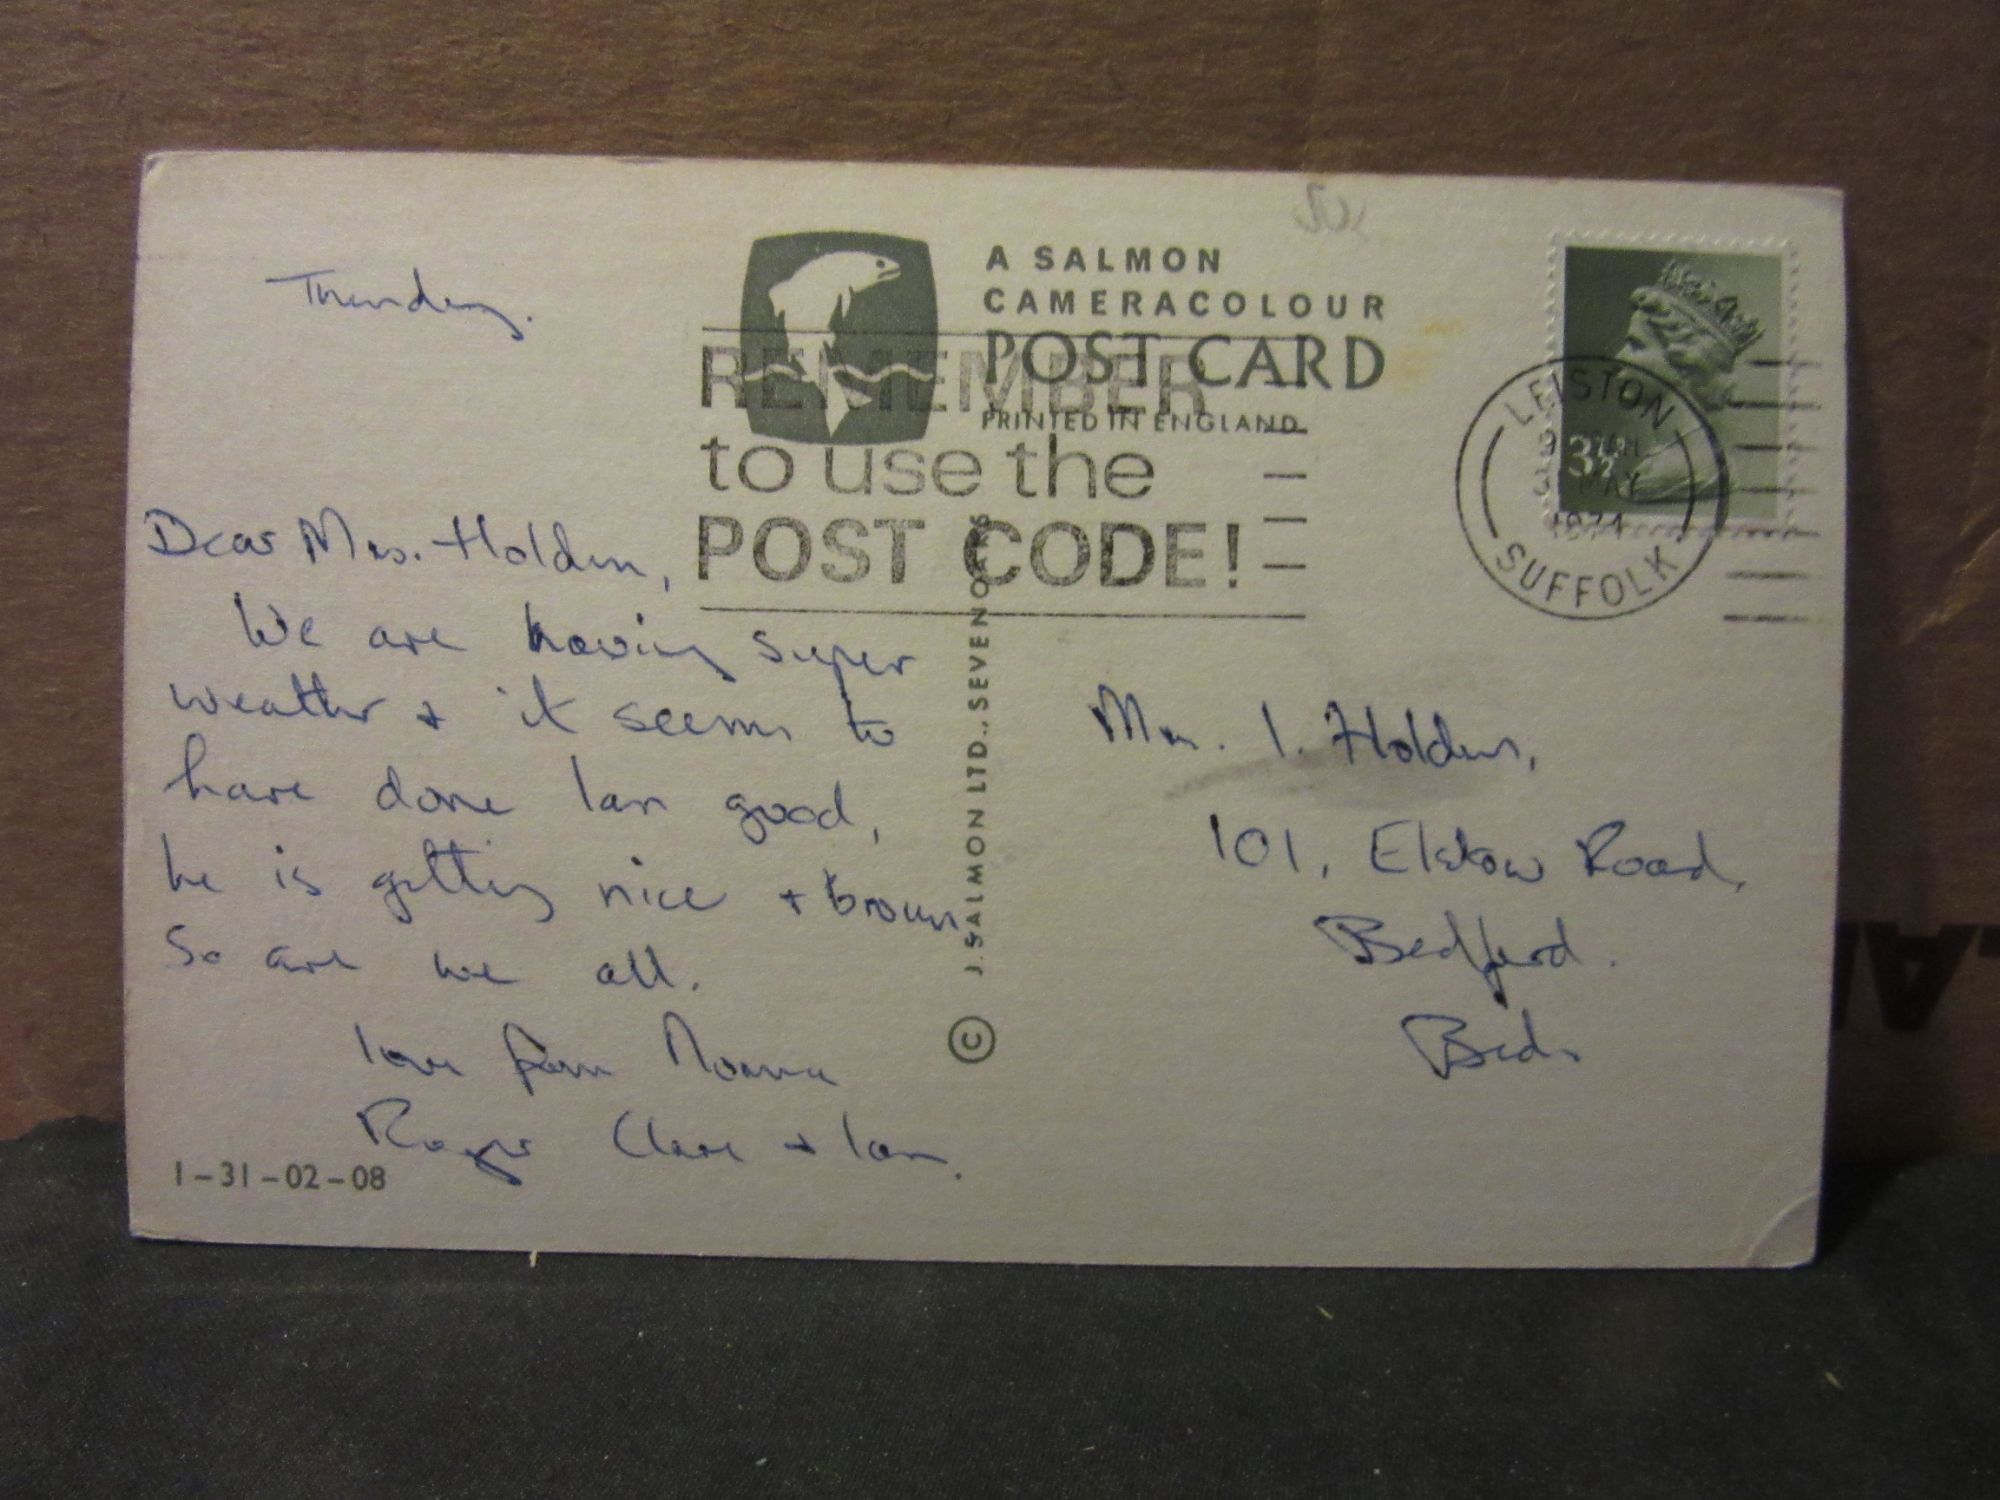 Thursday.
Dear Mrs. Holden,
We are having super
weather + it seems to
have done Ian good,
he is getting nice + brown
So are we all.
love from Norma
Roger Clare + Ian.
1-31-02-08
A SALMON
CAMERACOLOUR
POST CARD
PRINTED IN ENGLAND
REMEMBER
to use the
POST CODE!
© J. SALMON LTD., SEVENOAKS
3½
LEISTON
MAY
1974
SUFFOLK
Mrs. I. Holden,
101, Elstow Road,
Bedford.
Beds